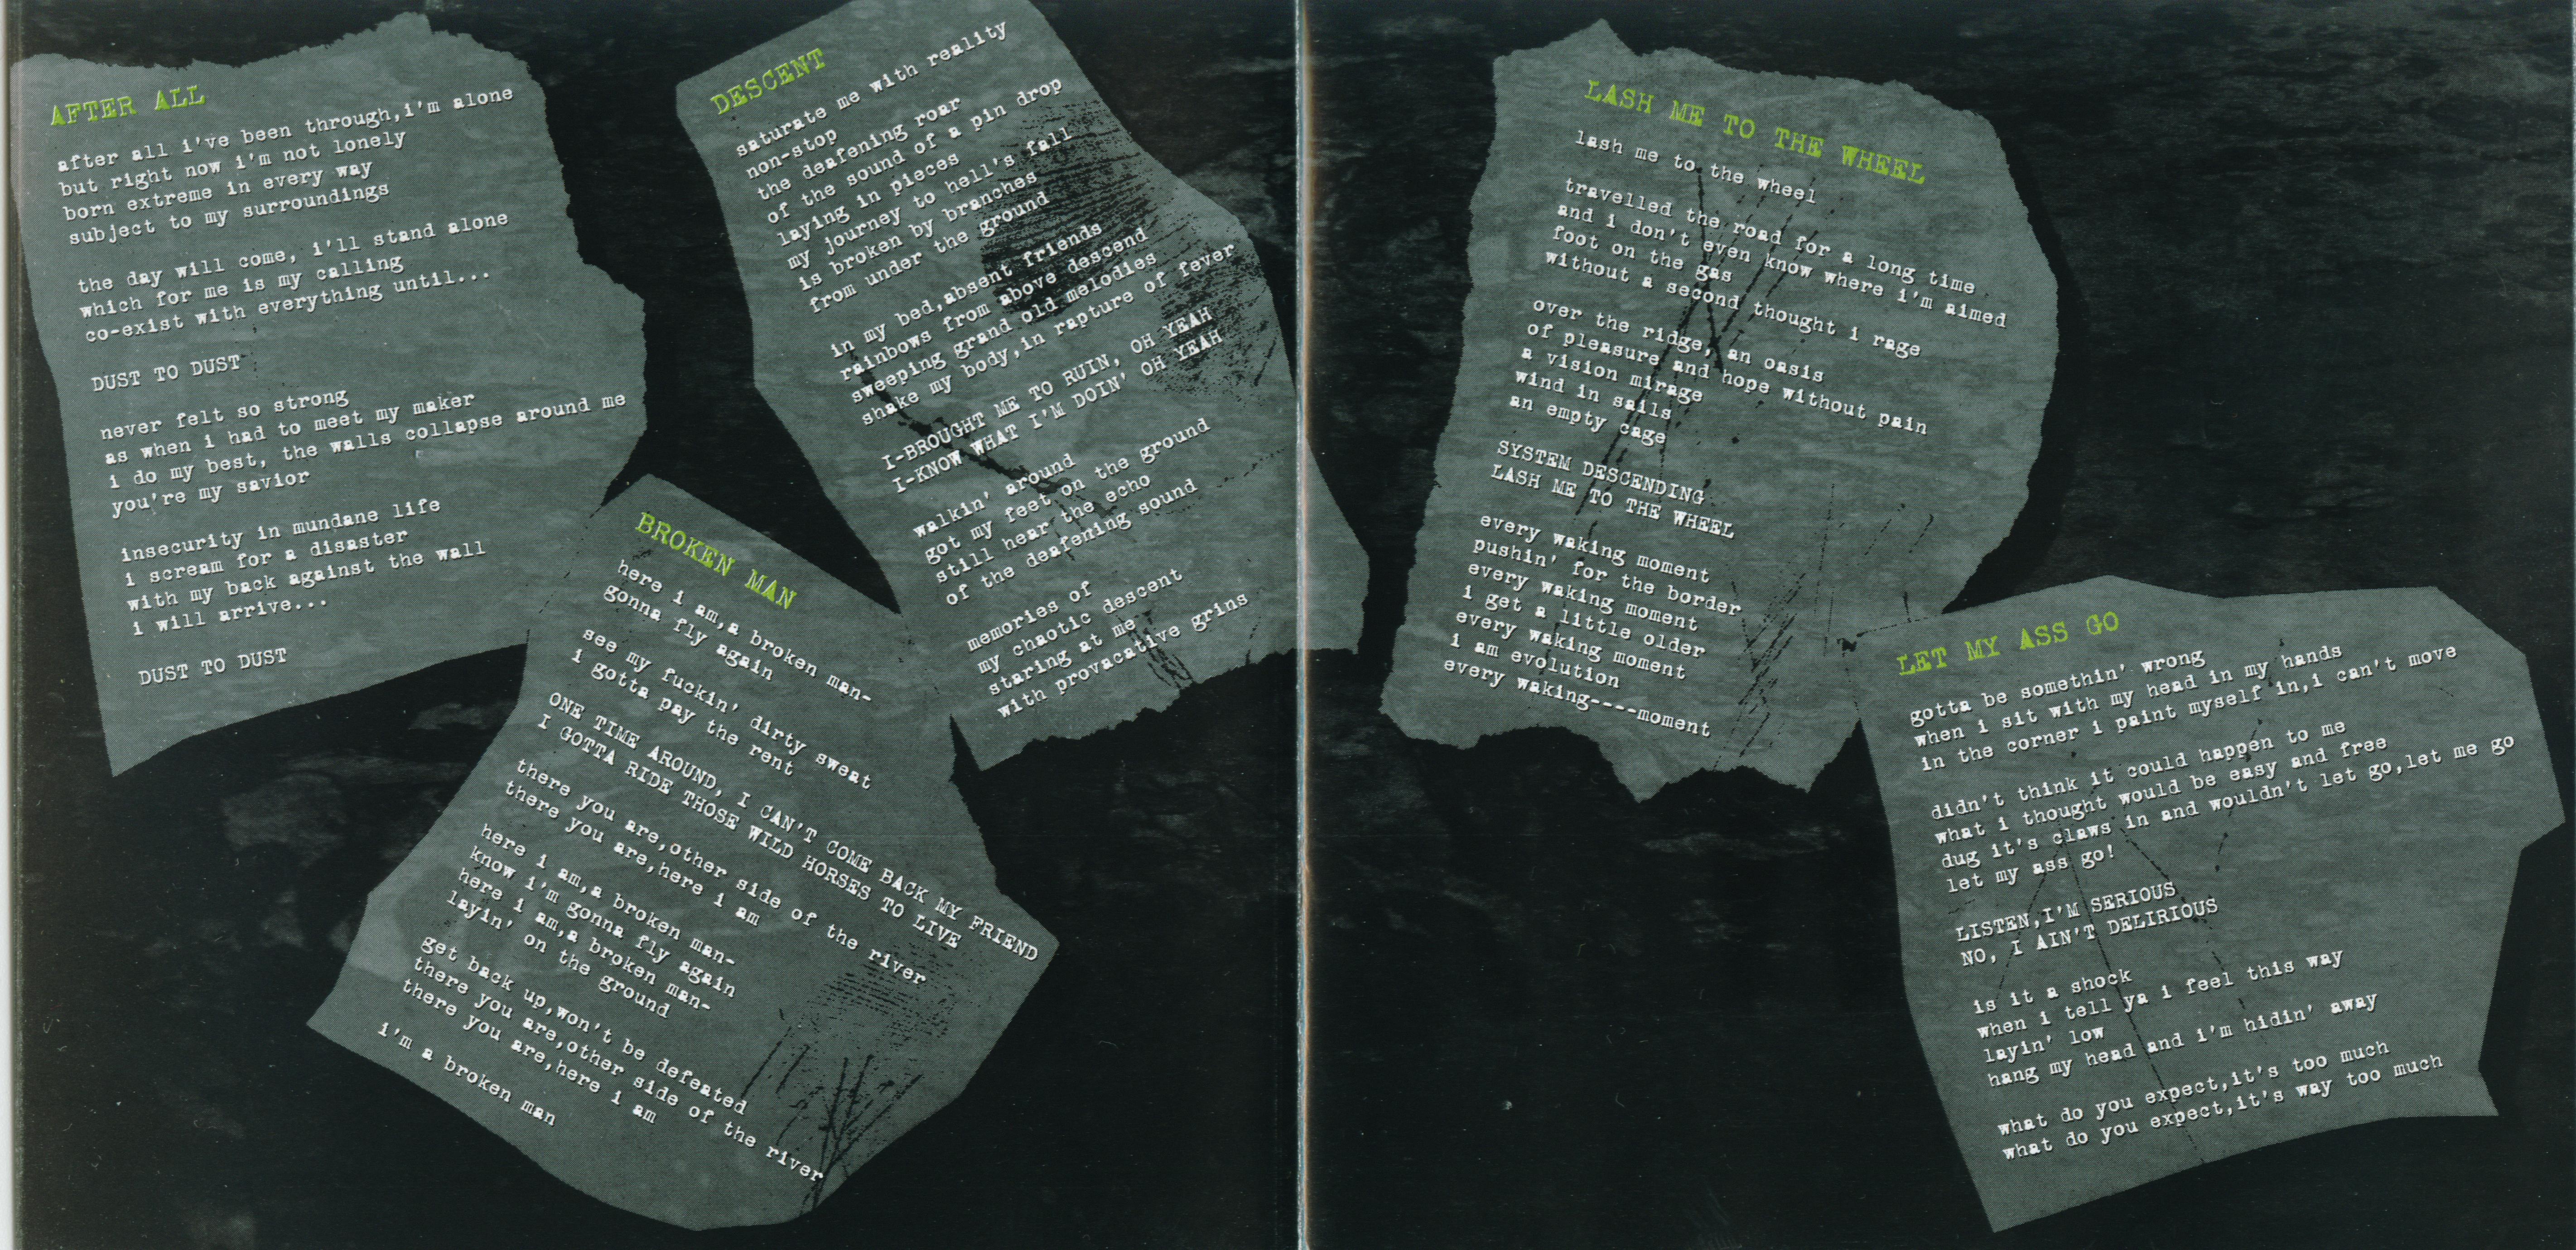 AFTER ALL
after all i've been through,i'm alone
but right now i'm not lonely
born extreme in every way
subject to my surroundings
the day will come, i'll stand alone
which for me is my calling
co-exist with everything until...
DUST TO DUST
never felt so strong
as when i had to meet my maker
i do my best, the walls collapse around me
you're my savior
insecurity in mundane life
i scream for a disaster
with my back against the wall
i will arrive...
DUST TO DUST
BROKEN MAN
here i am,a broken man-
gonna fly again
see my fuckin' dirty sweat
i gotta pay the rent
ONE TIME AROUND, I CAN'T COME BACK MY FRIEND
I GOTTA RIDE THOSE WILD HORSES TO LIVE
there you are,other side of the river
there you are,here i am
here i am,a broken man-
know i'm gonna fly again
here i am,a broken man-
layin' on the ground
get back up,won't be defeated
there you are,other side of the river
there you are,here i am
i'm a broken man
DESCENT
saturate me with reality
non-stop
the deafening roar
of the sound of a pin drop
laying in pieces
my journey to hell's fall
is broken by branches
from under the ground
in my bed,absent friends
rainbows from above descend
sweeping grand old melodies
shake my body,in rapture of fever
I-BROUGHT ME TO RUIN, OH YEAH
I-KNOW WHAT I'M DOIN' OH YEAH
walkin' around
got my feet on the ground
still hear the echo
of the deafening sound
memories of
my chaotic descent
staring at me
with provacative grins
LASH ME TO THE WHEEL
lash me to the wheel
travelled the road for a long time
and i don't even know where i'm aimed
foot on the gas
without a second thought i rage
over the ridge, an oasis
of pleasure and hope without pain
a vision mirage
wind in sails
an empty cage
SYSTEM DESCENDING
LASH ME TO THE WHEEL
every waking moment
pushin' for the border
every waking moment
i get a little older
every waking moment
i am evolution
every waking----moment
LET MY ASS GO
gotta be somethin' wrong
when i sit with my head in my hands
in the corner i paint myself in,i can't move
didn't think it could happen to me
what i thought would be easy and free
dug it's claws in and wouldn't let go,let me go
let my ass go!
LISTEN,I'M SERIOUS
NO, I AIN'T DELIRIOUS
is it a shock
when i tell ya i feel this way
layin' low
hang my head and i'm hidin' away
what do you expect,it's too much
what do you expect,it's way too much